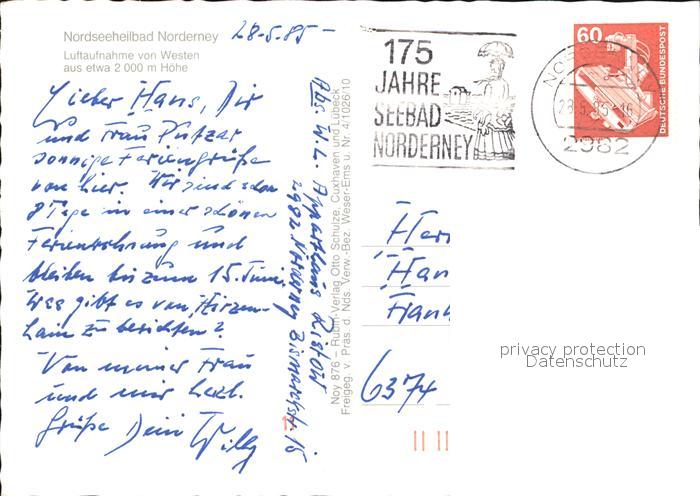 Nordseeheilbad Norderney
Luftaufnahme von Westen
aus etwa 2 000 m Höhe
28-5.85-
Lieber Hans, Dir
und Frau
sonnige Feriengrüße
von hier. Wir sind schon
8 Tage in einer schönen
Ferienwohnung und
bleiben bis zum 15. Juni,
Was gibt es von Hirzen-
hain zu berichten?
Von meiner Frau
und mir herzl.
Grüße Dein Willy
Abs. W. L. Apparthaus Ristow
2982 Norderney Bismarckstr. 15
Noy 876 – Rubin-Verlag Otto Schulze, Cuxhaven und Lübeck
Freigeg. v. Präs. d. Nds. Verw.-Bez. Weser-Ems u. Nr. 4/1026/10
175
JAHRE
SEEBAD
NORDERNEY
28.5.85-16
2982
60
DEUTSCHE BUNDESPOST
Herr
Han
Frank
6374
privacy protection
Datenschutz